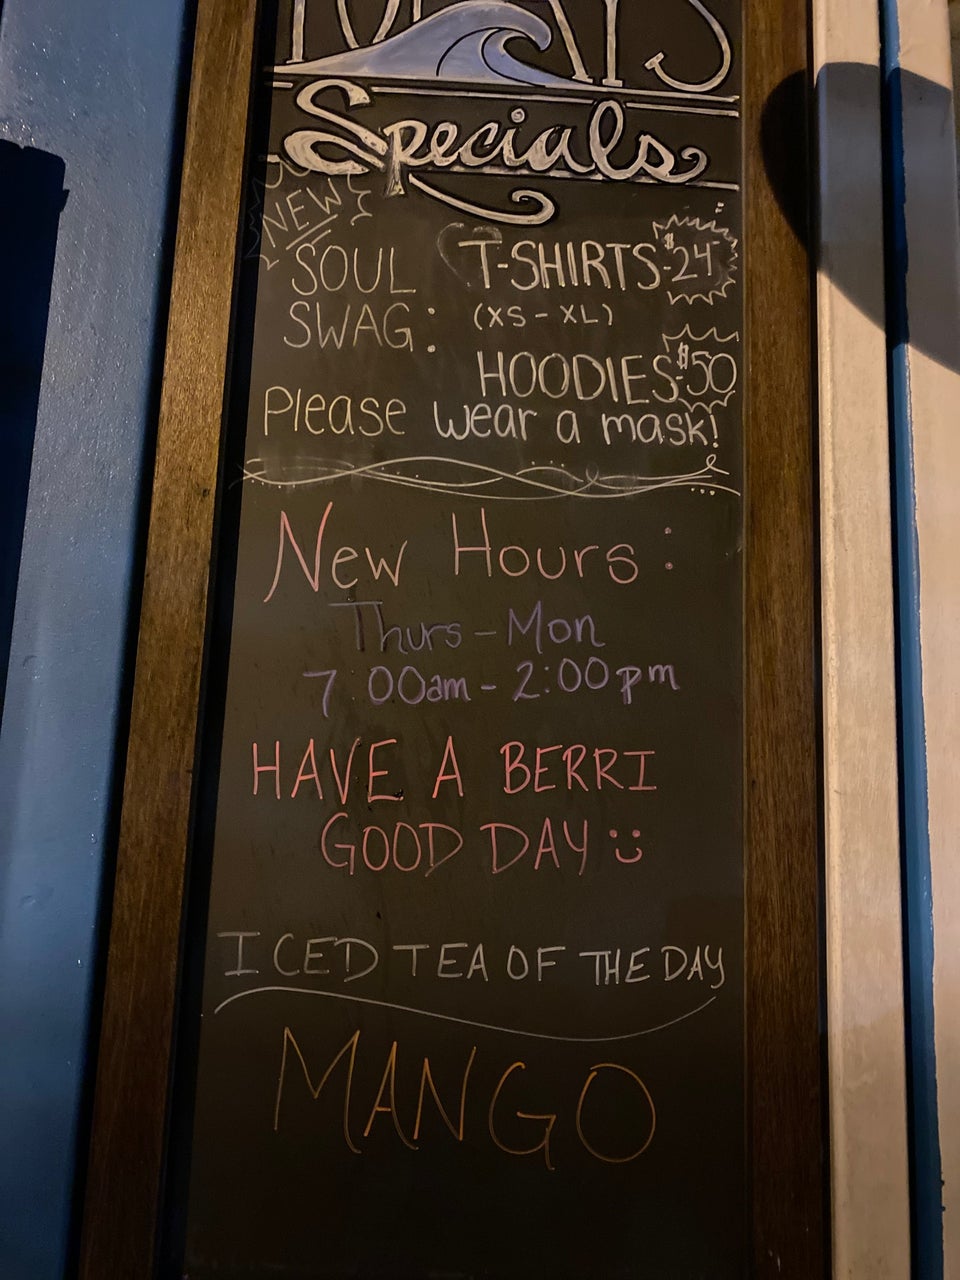 Specials
NEW
SOUL T-SHIRTS-$24
SWAG: (XS - XL)
HOODIES-$50
Please wear a mask!
New Hours:
Thurs - Mon
7:00am - 2:00pm
HAVE A BERRI
GOOD DAY :)
ICED TEA OF THE DAY
MANGO